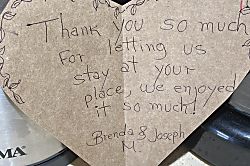 Thank you so much
For letting us
stay at your
place, we enjoyed
it so much!
Brenda & Joseph
M.
MA